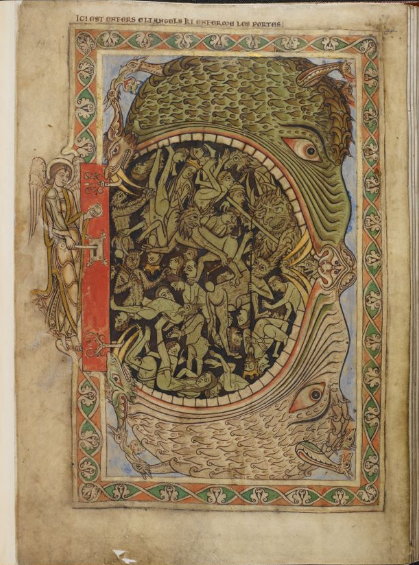 ICI EST ENFERS E LI ANGELS KI ENFERME LES PORTES